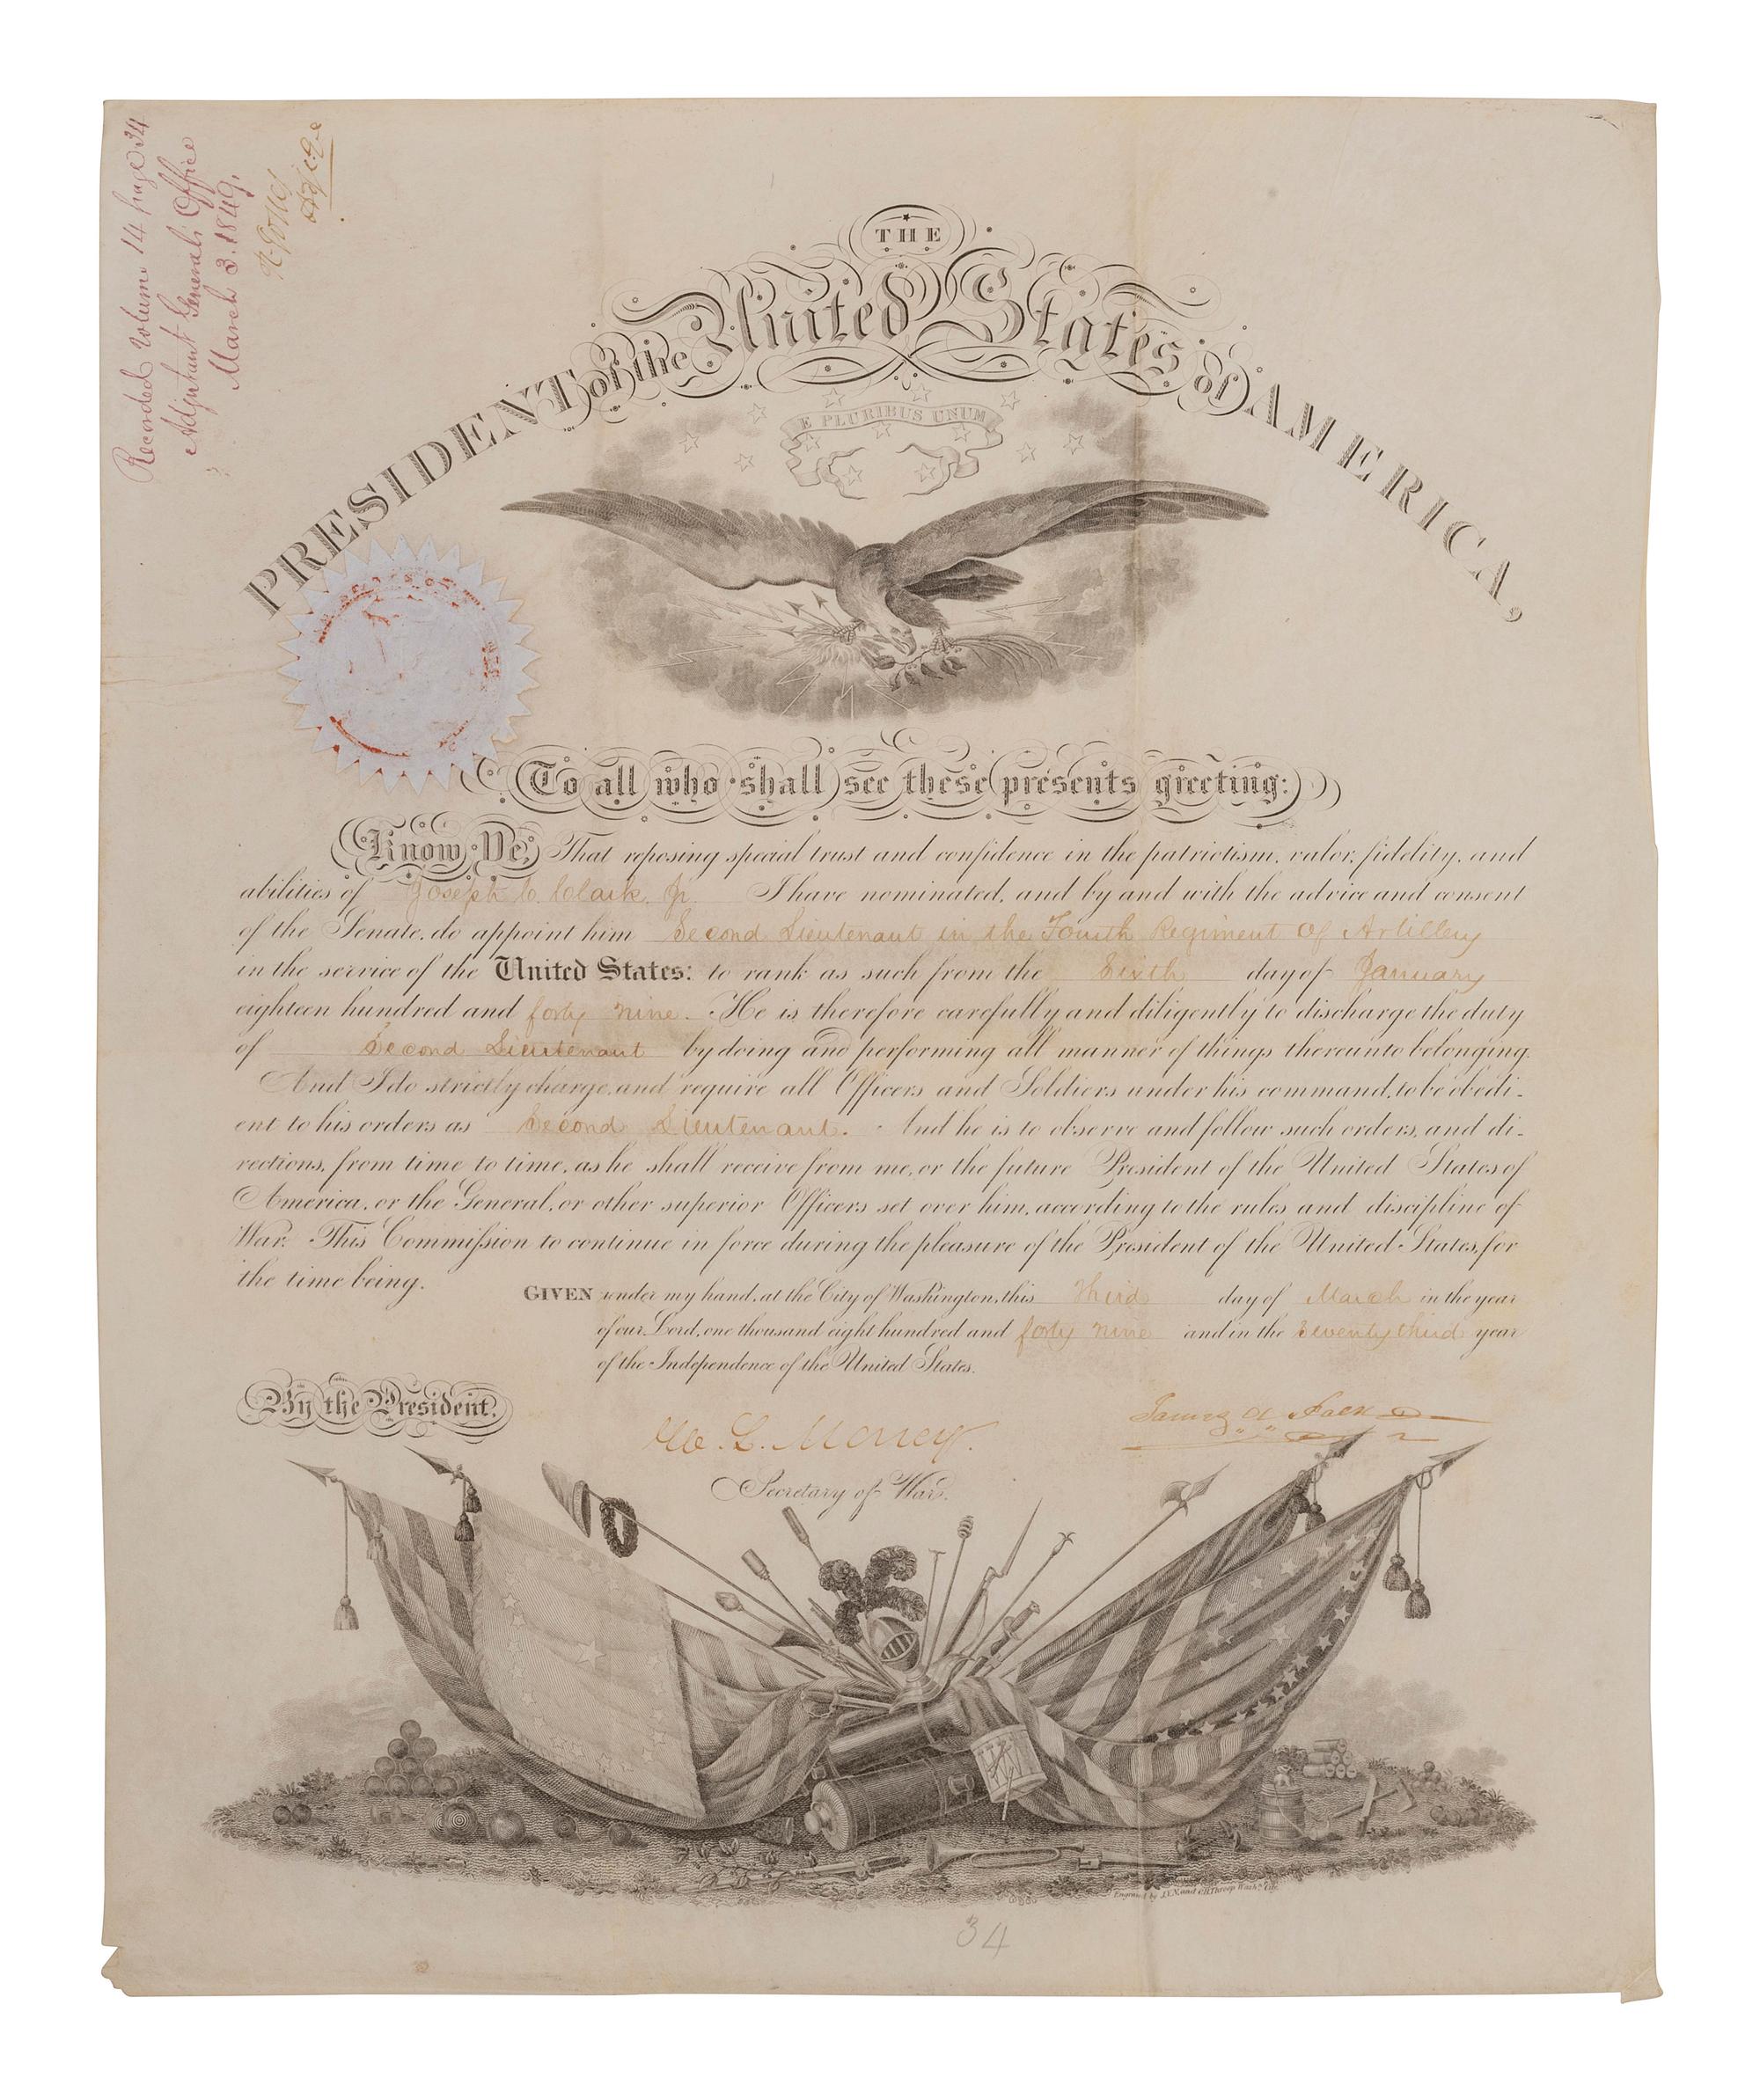 Recorded Volume 14 page 34
Adjutant General's Office
March 3. 1849.
THE
PRESIDENT of the United States of AMERICA,
E PLURIBUS UNUM
To all who shall see these presents greeting:
Know Ye, That reposing special trust and confidence in the patriotism, valor, fidelity, and
abilities of Joseph C. Clark, Jr. I have nominated, and by and with the advice and consent
of the Senate, do appoint him Second Lieutenant in the Fourth Regiment of Artillery
in the service of the United States: to rank as such from the Sixth day of January
eighteen hundred and forty nine. He is therefore carefully and diligently to discharge the duty
of Second Lieutenant by doing and performing all manner of things thereunto belonging.
And I do strictly charge, and require all Officers and Soldiers under his command, to be obedi-
ent to his orders as Second Lieutenant. And he is to observe and follow such orders, and di-
rections, from time to time, as he shall receive from me, or the future President of the United States of
America, or the General, or other superior Officers set over him, according to the rules and discipline of
War. This Commission to continue in force during the pleasure of the President of the United States, for
the time being.
GIVEN under my hand, at the City of Washington, this third day of March in the year
of our Lord, one thousand eight hundred and forty nine and in the Seventy third year
of the Independence of the United States.
By the President,
W. L. Marcy.
James K. Polk
Secretary of War.
Engraved by J.V.N. and O.H. Throop Wash. City
34